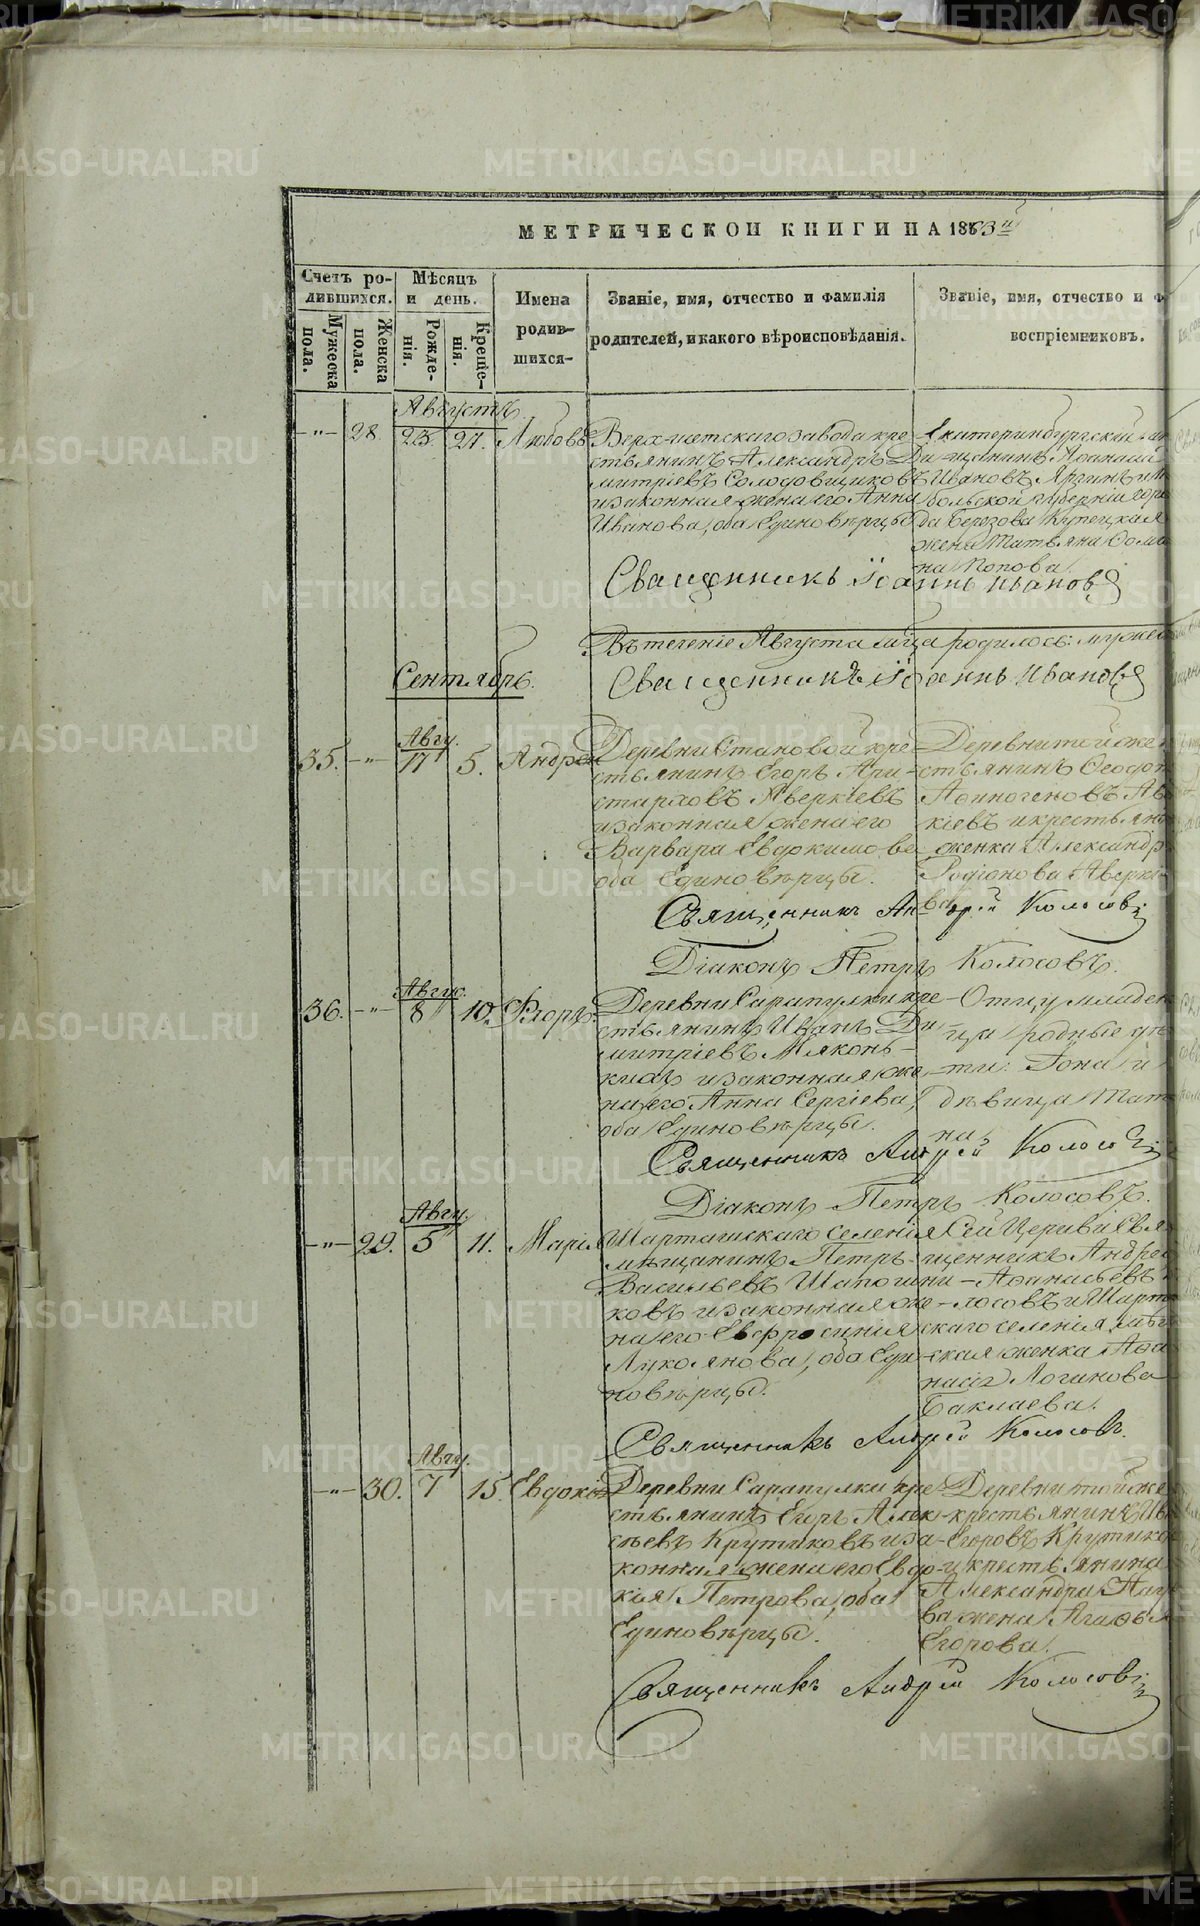 МЕТРИЧЕСКОЙ КНИГИ НА 1883й
Счетъ родившихся.
Мѣсяцъ и день.
Имена родившихся
Званіе, имя, отчество и фамилія родителей, и какого вѣроисповѣданія.
Званіе, имя, отчество и ф
воспріемниковъ.
Мужеска пола.
Женска пола.
Рожденія.
Крещенія.
Августъ
-"- 28. 23. 27. Любовь
Верх-исетскаго завода кре
стьянинъ Александръ Ди
митріевъ Солодовщиковъ
и законная жена его Анна
Иванова, оба Единовѣрцы
Екатеринбургскій
щанинъ Аѳанасій
Ивановъ Яргинъ и
больской губерніи горо
да Березова Купецкая
жена Татьяна
на Попова.
Священникъ Іоаннъ Ивановъ
Въ теченіе Августа м-ца родилось: муже
Сентябрь.
Священникъ Іоаннъ Ивановъ
35. -"- Авгу. 17 5. Андрей
Деревни Становой кре
стьянинъ Егоръ Ари
старховъ Аверкіевъ
и законная жена его
Варвара Евдокимова
оба Единовѣрцы.
Деревни той же
стьянинъ Ѳеодо
Аѳиногеновъ Аве
кіевъ и крестьян
женка Александр
Родіонова Аверкі
ва
Священникъ Андрей Колосовъ
Діаконъ Петръ Колосовъ.
36. -"- Авгус. 8 10. Флоръ
Деревни Сарапулки кре
стьянинъ Иванъ Ди
митріевъ Мяконь
кихъ и законная же
на его Анна Сергіева,
оба Единовѣрцы.
Отцу младен
ца родные дѣ
ти: Іона и
дѣвица Тать
на
Священникъ Андрей Колосовъ
Діаконъ Петръ Колосовъ.
-"- 29. Авгу. 5 11. Марія
Шарташскаго селенія
мѣщанинъ Петръ
Васильевъ Шапошни
ковъ и законная же
на его Евфросинія
Лукоянова, оба Еди
новѣрцы.
Сей Церкви Свя
щенникъ Андрей
Аѳанасьевъ
лосовъ и Шарта
скаго селенія мѣщ
ская женка Аѳа
насія Логинова
Баклаева.
Священникъ Андрей Колосовъ.
-"- 30. Авгу. 7 15. Евдокія
Деревни Сарапулки кре
стьянинъ Егоръ Алек
сѣевъ Крутиковъ и за
конная жена его Евдо
кія Петрова, оба
Единовѣрцы.
Деревни той же
крестьянинъ Ив
Егоровъ Крутико
и крестьянина
Александра
ва жена Агаѳья
Егорова.
Священникъ Андрей Колосовъ